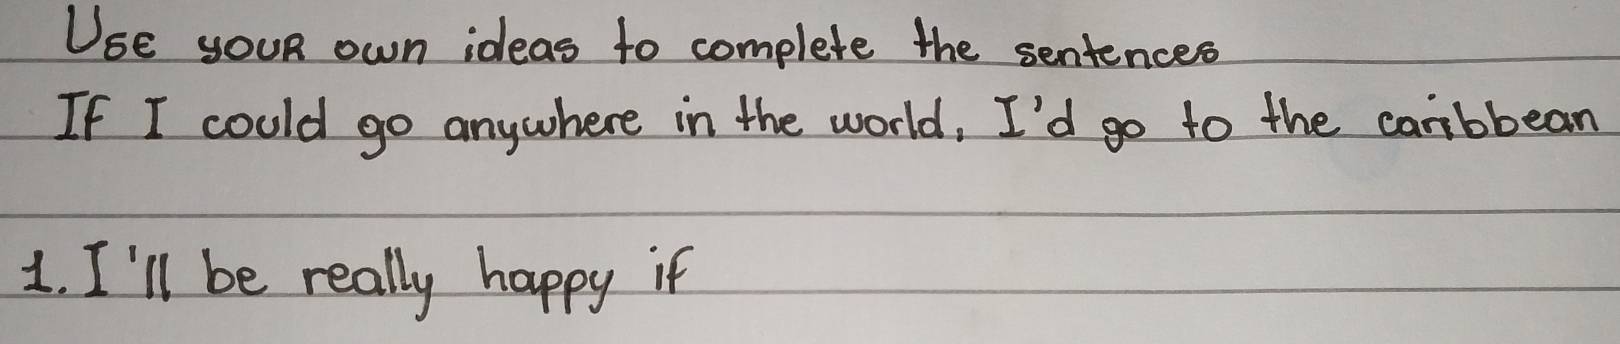 Use your own ideas to complete the sentences
If I could go anywhere in the world, I'd go to the caribbean
1. I'll be really happy if